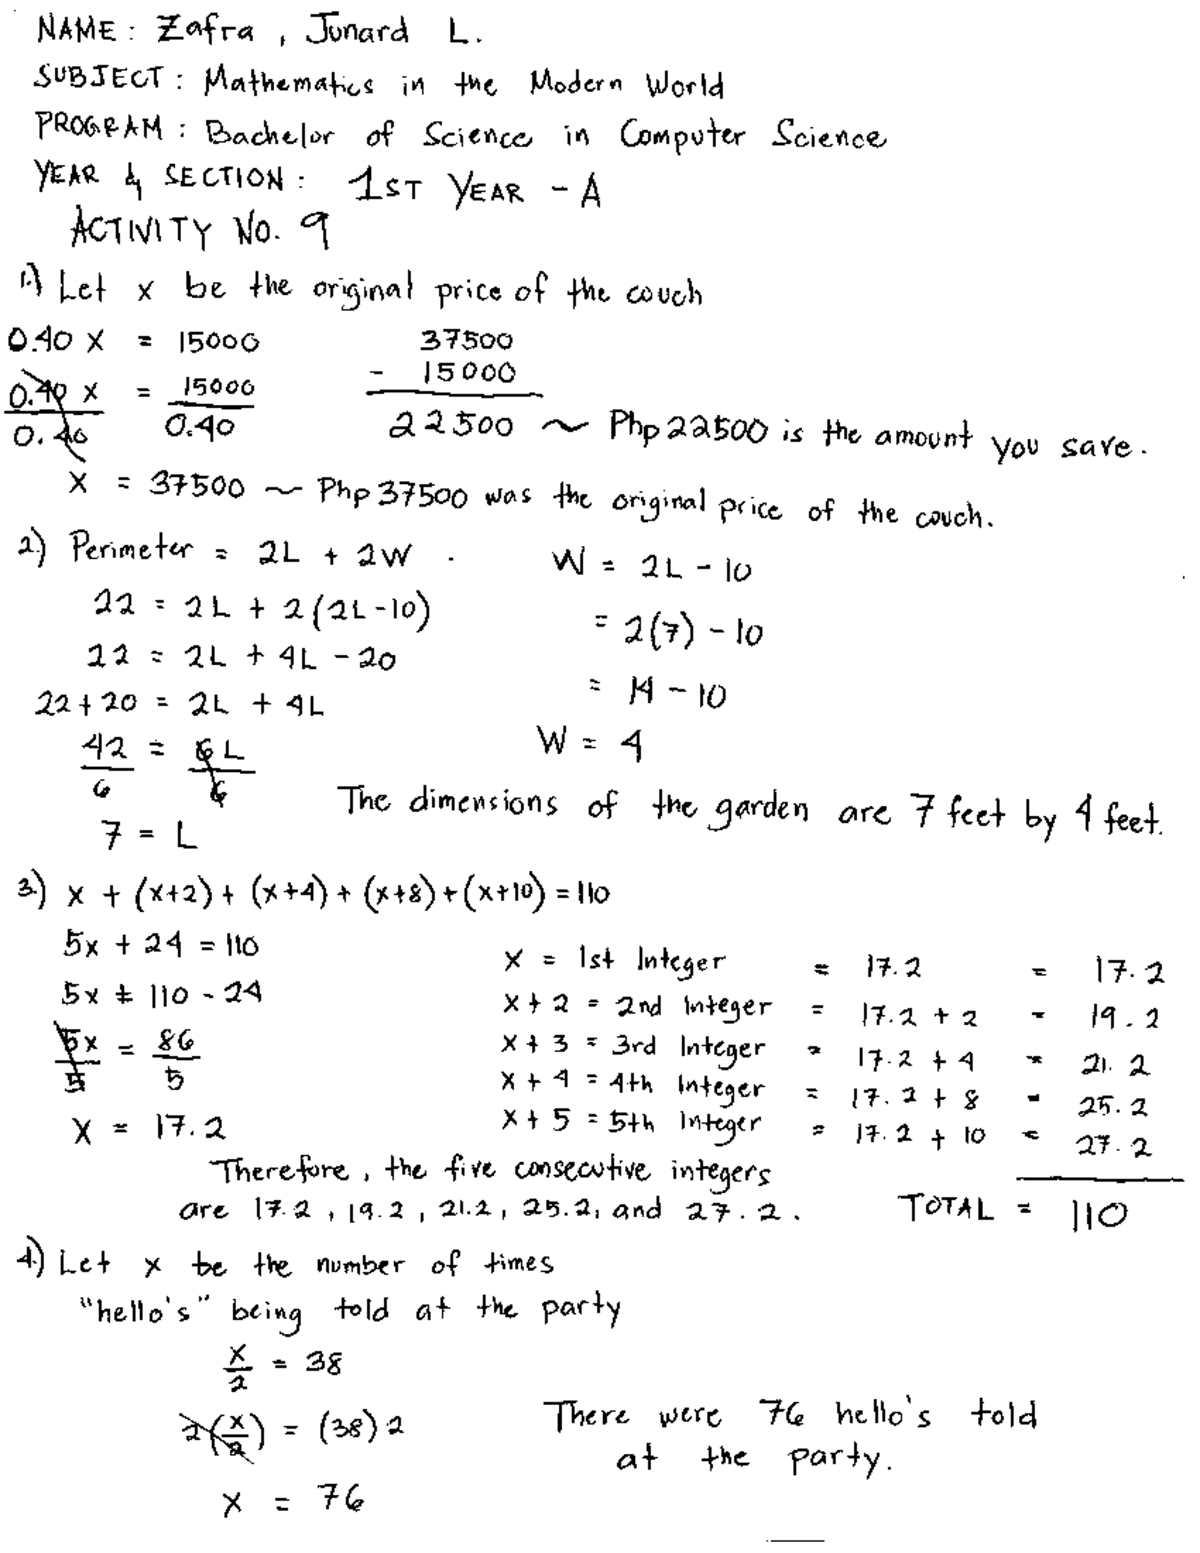 NAME : Zafra , Junard L.
SUBJECT : Mathematics in the Modern World
PROGRAM : Bachelor of Science in Computer Science
YEAR & SECTION : 1ST YEAR - A
ACTIVITY NO. 9
1.) Let x be the original price of the couch
0.40 x = 15000
0.40 x / 0.40 = 15000 / 0.40
x = 37500 ~ Php 37500 was the original price of the couch.
37500
- 15000
22500 ~ Php 22500 is the amount you save.
2.) Perimeter = 2L + 2W
22 = 2L + 2(2L-10)
22 = 2L + 4L - 20
22 + 20 = 2L + 4L
42 / 6 = 6L / 6
7 = L
W = 2L - 10
= 2(7) - 10
= 14 - 10
W = 4
The dimensions of the garden are 7 feet by 4 feet.
3.) x + (x+2) + (x+4) + (x+8) + (x+10) = 110
5x + 24 = 110
5x = 110 - 24
5x / 5 = 86 / 5
x = 17.2
x = 1st Integer = 17.2 = 17.2
x + 2 = 2nd Integer = 17.2 + 2 = 19.2
x + 3 = 3rd Integer = 17.2 + 4 = 21.2
x + 4 = 4th Integer = 17.2 + 8 = 25.2
x + 5 = 5th Integer = 17.2 + 10 = 27.2
TOTAL = 110
Therefore, the five consecutive integers
are 17.2, 19.2, 21.2, 25.2, and 27.2.
4.) Let x be the number of times
"hello's" being told at the party
x / 2 = 38
2(x / 2) = (38)2
x = 76
There were 76 hello's told
at the party.